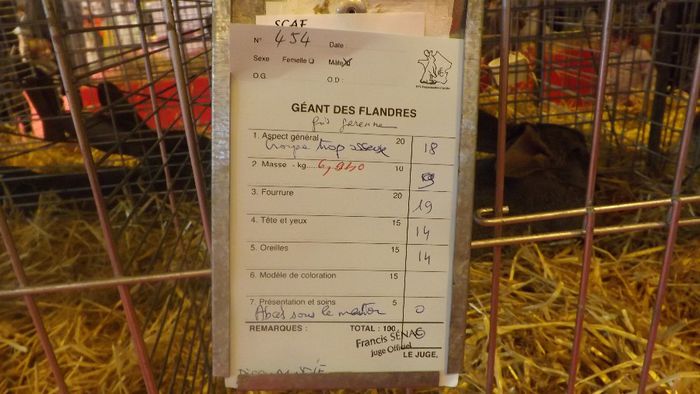 SCAF
N° 454 Date :
Sexe Femelle Mâle
O.G. O.D :
GÉANT DES FLANDRES
gris garenne
1. Aspect général 20 18
croupe trop
2. Masse - kg.... 6,840 10 9
3. Fourrure 20 19
4. Tête et yeux 15 14
5. Oreilles 15 14
6. Modèle de coloration 15
7. Présentation et soins 5 0
Abcès sous le menton
REMARQUES : TOTAL : 100 0
Francis SÉNAC
Juge Officiel
LE JUGE,